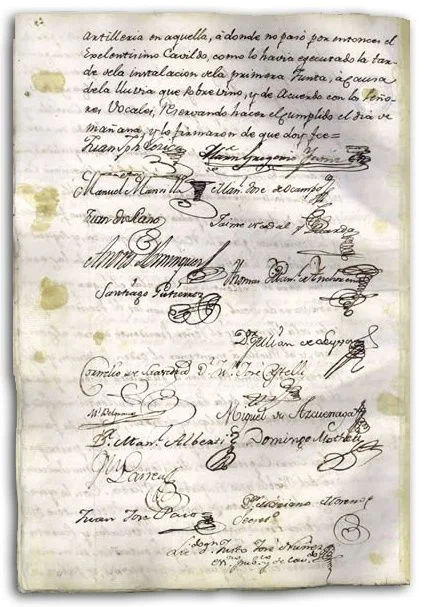 artilleria en aquella, à donde no pasó por entonces el
Exelentisimo Cavildo, como lo havia executado la tar-
de dela instalacion dela primera Junta, à causa
dela lluvia que sobrevino, y de Acuerdo con los Seño-
res Vocales, reservando hacer el cumplido el dia de
mañana, y lo firmaron de que doy fee=
Juan Jph Lezica Martin Gregorio Yaniz
Manuel Mansilla Man.l José de Ocampo
Juan de Llano Jaime Nadal y Guarda
Andres Dominguez
Thomas Man.l de Anchorena
Santiago Gutierrez
D.r Julian de Leyva
Cornelio de Saavedra D.r Juan José Castelli
M.l Belgrano Miguel de Azcuenaga
D.r Man.l Alberti Domingo Matheu
Juan Larrea
Juan José Paso D.r Mariano Moreno
Secret.o
Lic.do D.n Justo José Nuñez